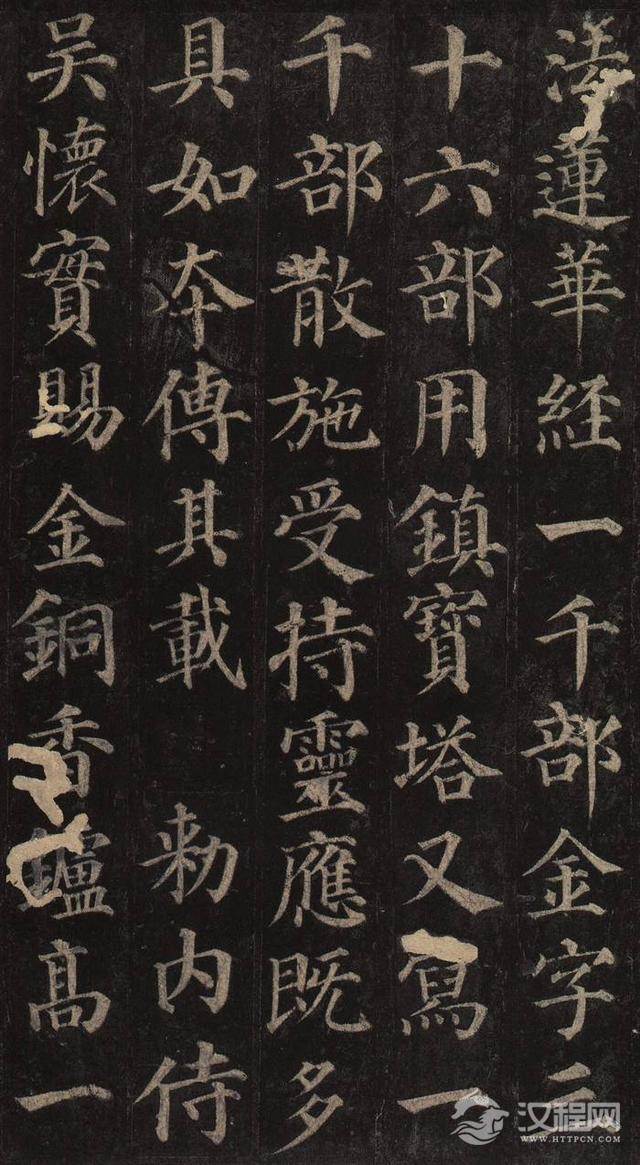 法蓮華經一千部金字三
十六部用鎮寶塔又寫一
千部散施受持靈應既多
具如夲傳其載 勑內侍
吳懷實賜金銅香鑪髙一
汉程网
WWW.HTTPCN.COM